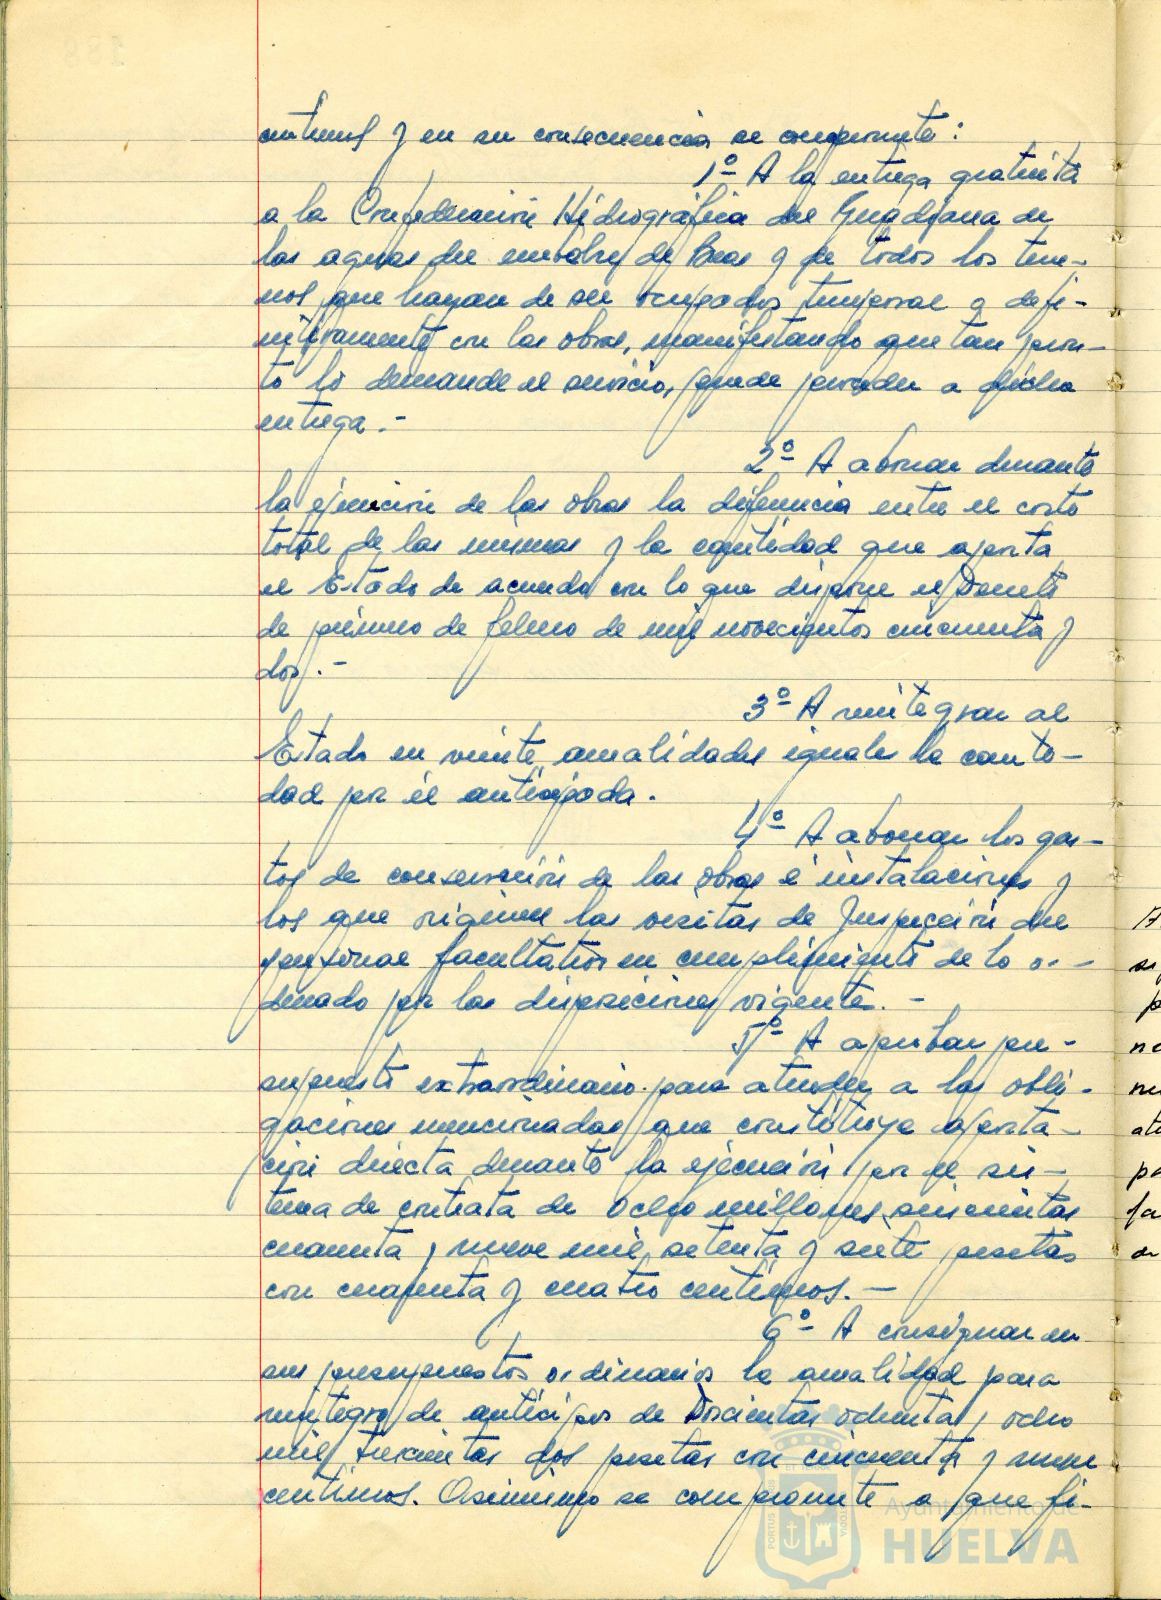 y en su consecuencia se compromete:
1º A la entrega gratuita
a la Confederación Hidrográfica del Guadiana de
las aguas del embalse de Beas y de todos los terre-
nos que hayan de ser ocupados temporal o defi-
nitivamente con las obras, manifestando que tan pron-
to lo demande el servicio, puede proceder a dicha
entrega.-
2º A abonar durante
la ejecución de las obras la diferencia entre el costo
total de las mismas y la cantidad que aporta
el Estado de acuerdo con lo que dispone el Decreto
de primero de febrero de mil novecientos cincuenta y
dos.-
3º A reintegrar al
Estado en veinte anualidades iguales la canti-
dad por él anticipada.
4º A abonar los gas-
tos de conservación de las obras e instalaciones y
los que originen las visitas de Inspección del
personal facultativo en cumplimiento de lo or-
denado por las disposiciones vigentes.-
5º A aprobar pre-
supuesto extraordinario para atender a las obli-
gaciones mencionadas que constituye aporta-
ción directa durante la ejecución por el sis-
tema de contrata de ocho millones seiscientas
cuarenta y nueve mil setenta y siete pesetas
con cuarenta y cuatro centimos.-
6º A consignar en
sus presupuestos ordinarios la anualidad para
reintegro de anticipos de Doscientas ochenta y ocho
mil trescientas dos pesetas con cincuenta y nueve
centimos. Asimismo se compromete a que fi-
Ayuntamiento de
HUELVA